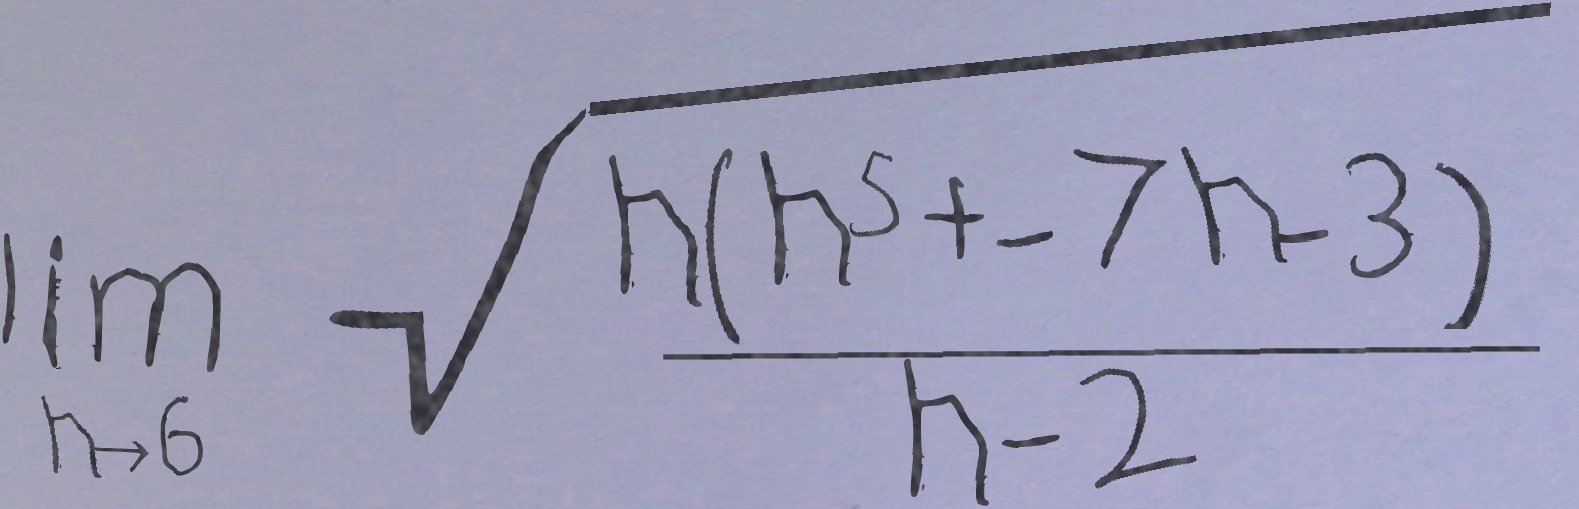 \lim_{h \to 6} \sqrt{\frac{h(h^5 + -7h - 3)}{h - 2}}